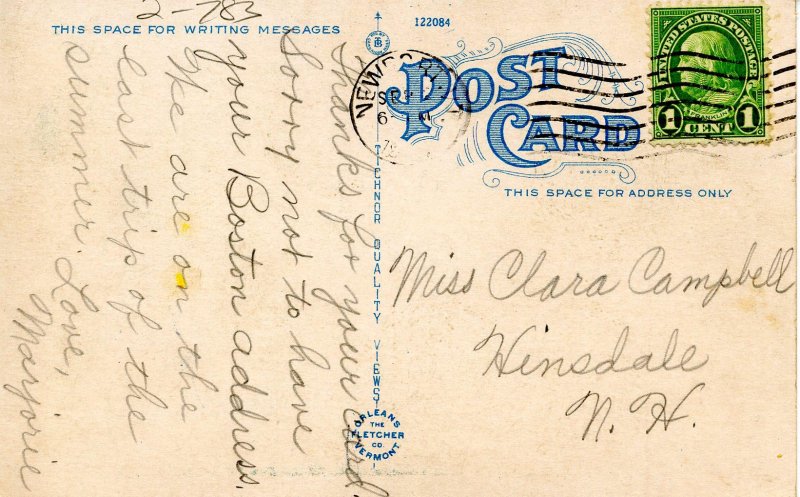 2-783
THIS SPACE FOR WRITING MESSAGES
122084
Thanks for your card.
Sorry not to have
your Boston address.
We are on the
last trip of the
summer. Love,
Marjorie
TICHNOR QUALITY VIEWS
ORLEANS
THE
FLETCHER
CO.
VERMONT
POST
CARD
THIS SPACE FOR ADDRESS ONLY
NEWPORT
SEP
6
UNITED STATES POSTAGE
FRANKLIN
1 CENT 1
Miss Clara Campbell
Hinsdale
N. H.